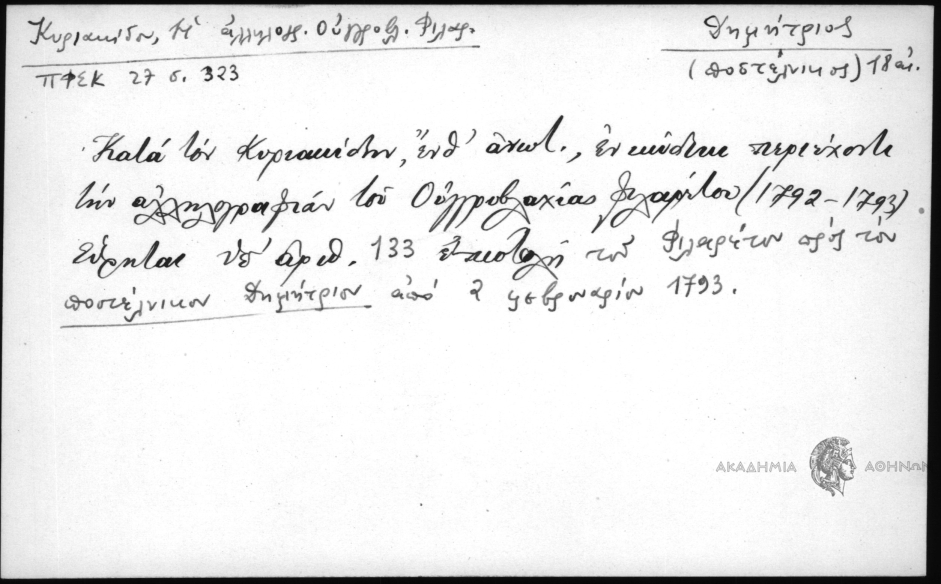 Κυριακίδου, Ἡ ἀλληλογρ. Οὐγγροβλ. Φιλαρ.
Δημήτριος
ΠΦΣΚ 27 σ. 323
(ποστέλνικος) 18 αἰ.
Κατά τόν Κυριακίδην, ἔνθ' ἀνωτ., ἐν κώδικι περιέχοντι
τήν ἀλληλογραφίαν τοῦ Οὐγγροβλαχίας Φιλαρέτου (1792-1793)
εὕρηται ὑπ' ἀριθ. 133 ἐπιστολή τοῦ Φιλαρέτου πρός τόν
ποστέλνικον Δημήτριον ἀπό 2 φεβρουαρίου 1793.
ΑΚΑΔΗΜΙΑ ΑΘΗΝΩΝ